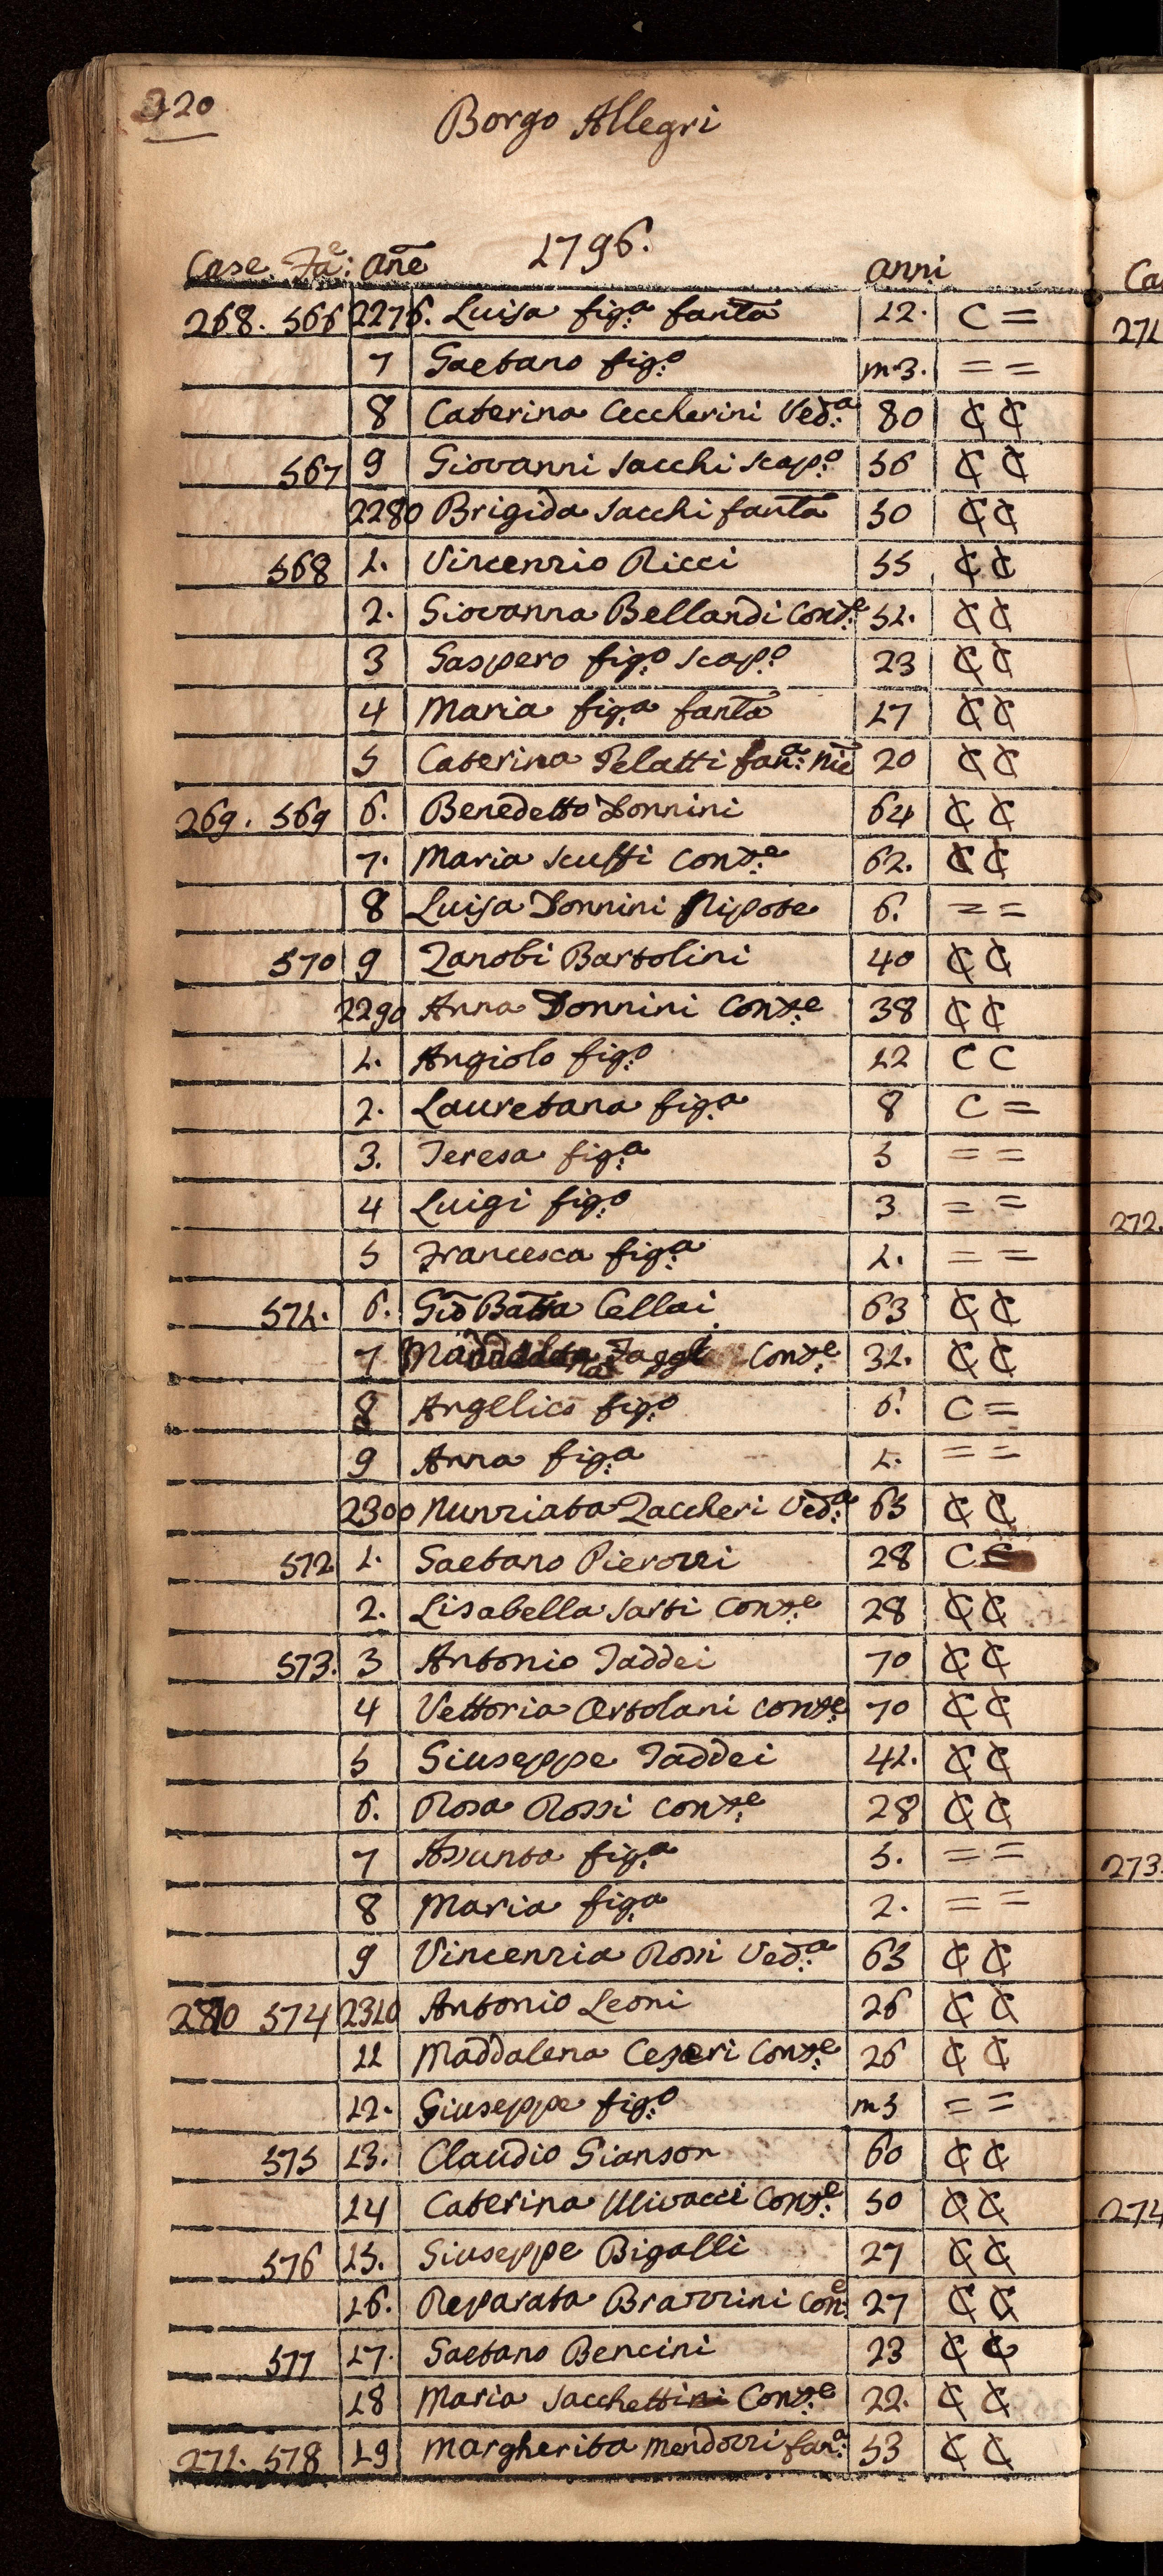 320
Borgo Allegri
1796.
Case Fa:e Ane anni
268. 566 2276. Luisa fig:a fanta 12. C =
7 Gaetano fig:o m 3. = =
8 Caterina Ceccherini Ved:a 80 ₵ ₵
567 9 Giovanni Sacchi scap:o 56 ₵ ₵
2280 Brigida Sacchi fanta 50 ₵ ₵
568 1. Vincenzio Ricci 55 ₵ ₵
2. Giovanna Bellandi Cons:e 51. ₵ ₵
3 Gaspero fig:o scap:o 23 ₵ ₵
4 Maria fig:a fanta 17 ₵ ₵
5 Caterina Pelatti fan:a nie 20 ₵ ₵
269. 569 6. Benedetto Donnini 64 ₵ ₵
7. Maria Scuffi Cons:e 62. ₵ ₵
8 Luisa Donnini Nipote 6. = =
570 9 Zanobi Bartolini 40 ₵ ₵
2290 Anna Donnini Cons:e 38 ₵ ₵
1. Angiolo fig:o 12 C C
2. Lauretana fig:a 8 C =
3. Teresa fig:a 5 = =
4 Luigi fig:o 3 = =
5 Francesca fig:a 1. = =
571. 6. Gio Batta Cellai 63 ₵ ₵
7 Cons:e 31. ₵ ₵
8 Angelico fig:o 6. C =
9 Anna fig:a 1. = =
2300 Nunziata Zaccheri Ved:a 65 ₵ ₵
572 1. Gaetano Pierozzi 28 C
2. Lisabella Sarti Cons:e 28 ₵ ₵
573. 3 Antonio Taddei 70 ₵ ₵
4 Vettoria Ortolani Cons:e 70 ₵ ₵
5 Giuseppe Taddei 41. ₵ ₵
6. Rosa Rossi Cons:e 28 ₵ ₵
7 Assunta fig:a 5. = =
8 Maria fig:a 2. = =
9 Vincenzia Rossi Ved:a 63 ₵ ₵
574 2310 Antonio Leoni 26 ₵ ₵
11 Maddalena Ceseri Cons:e 26 ₵ ₵
12. Giuseppe fig:o m 3 = =
575 13. Claudio Gianson 60 ₵ ₵
14 Caterina Ulivacci Cons:e 50 ₵ ₵
576 15. Giuseppe Bigalli 27 ₵ ₵
16. Reparata Brazzini Con:e 27 ₵ ₵
577 17. Gaetano Bencini 23 ₵ ₵
18 Maria Sacchetti Cons:e 22. ₵ ₵
271. 578 19 Margherita Mendozzi fan:a 53 ₵ ₵
Ca
271
272.
273.
274